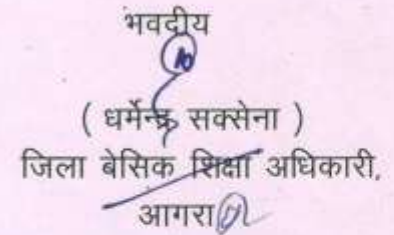 भवदीय
( धर्मेन्द्र सक्सेना )
जिला बेसिक शिक्षा अधिकारी,
आगरा